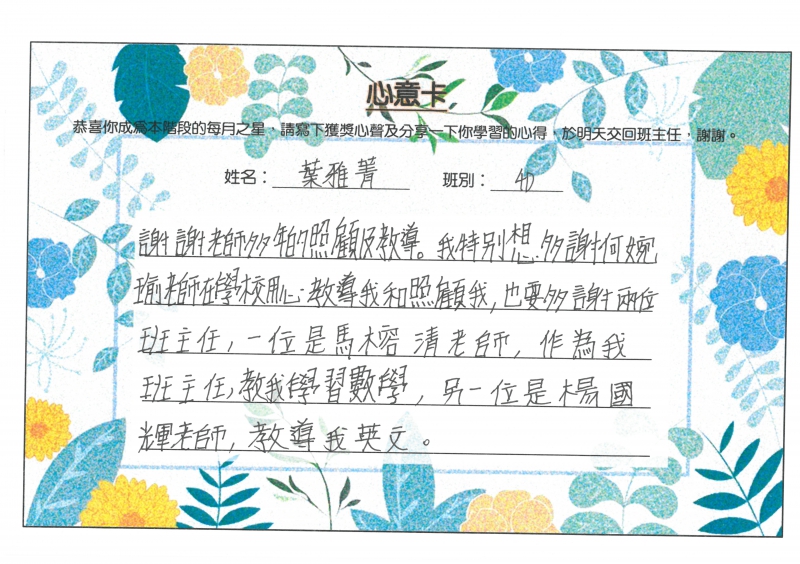 心意卡
恭喜你成為本階段的每月之星，請寫下獲獎心聲及分享一下你學習的心得，於明天交回班主任，謝謝。
姓名： 葉雅菁 班別： 4D
謝謝老師多年的照顧及教導。我特別想多謝何婉
瑜老師在學校用心教導我和照顧我，也要多謝兩位
班主任，一位是馬榕清老師，作為我
班主任，教我學習數學，另一位是楊國
輝老師，教導我英文。